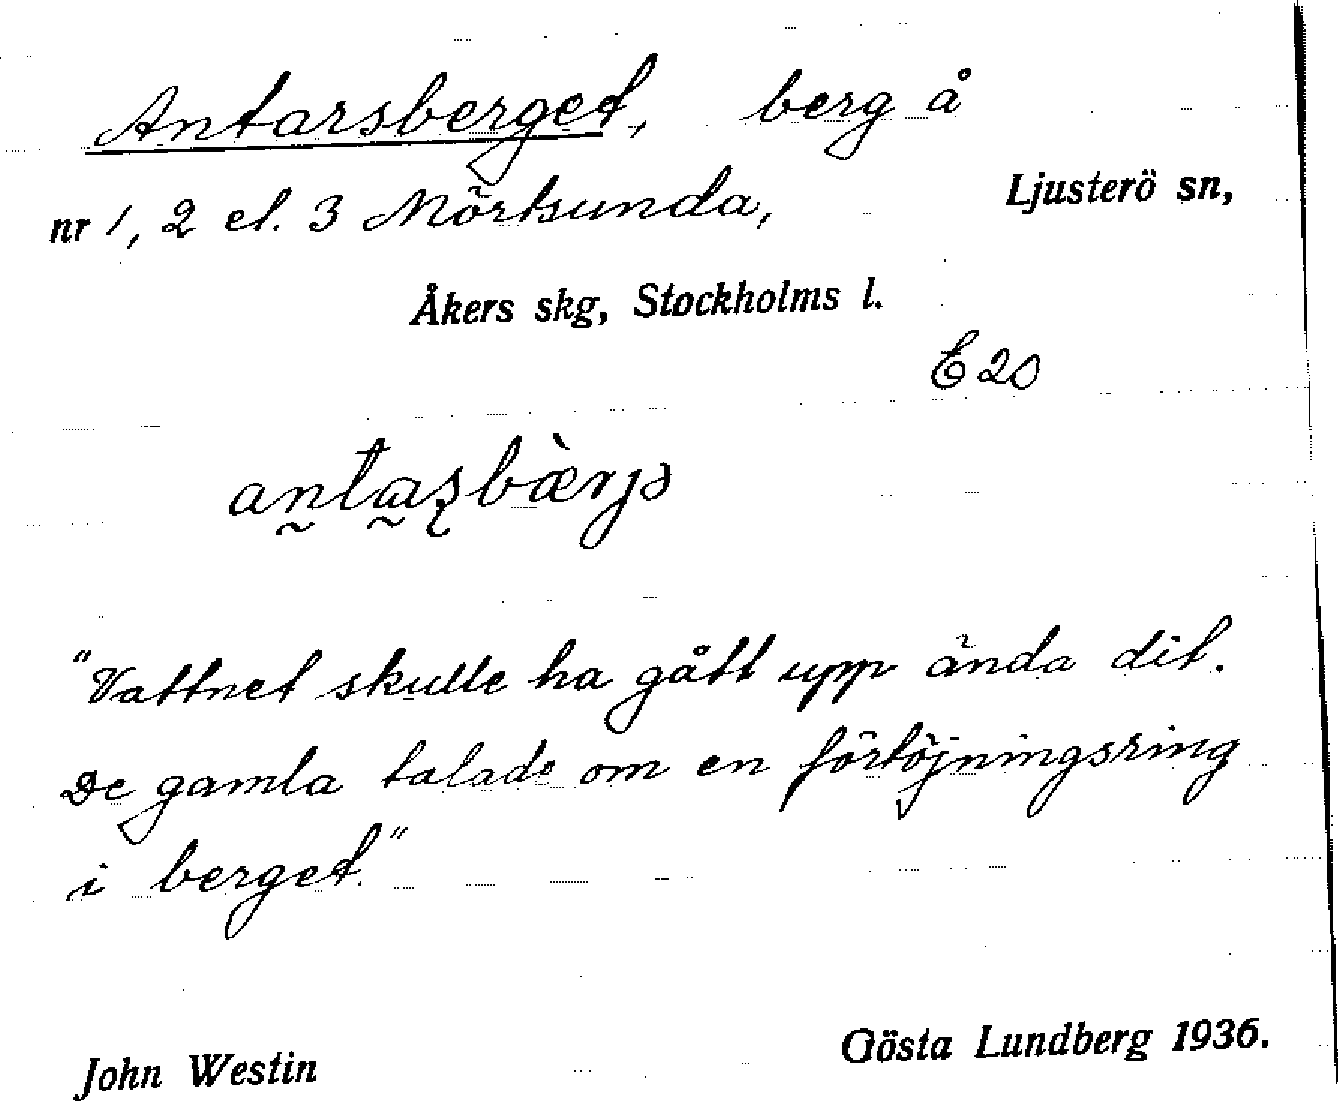 Antarsberget, berg å
nr 1, 2 el. 3 Mörtsunda, Ljusterö sn,
Åkers skg, Stockholms l.
E 20
an̰ta̰ʂbæ̀rjə
"Vattnet skulle ha gått upp ända dit.
De gamla talade om en förtöjningsring
i berget."
John Westin Gösta Lundberg 1936.